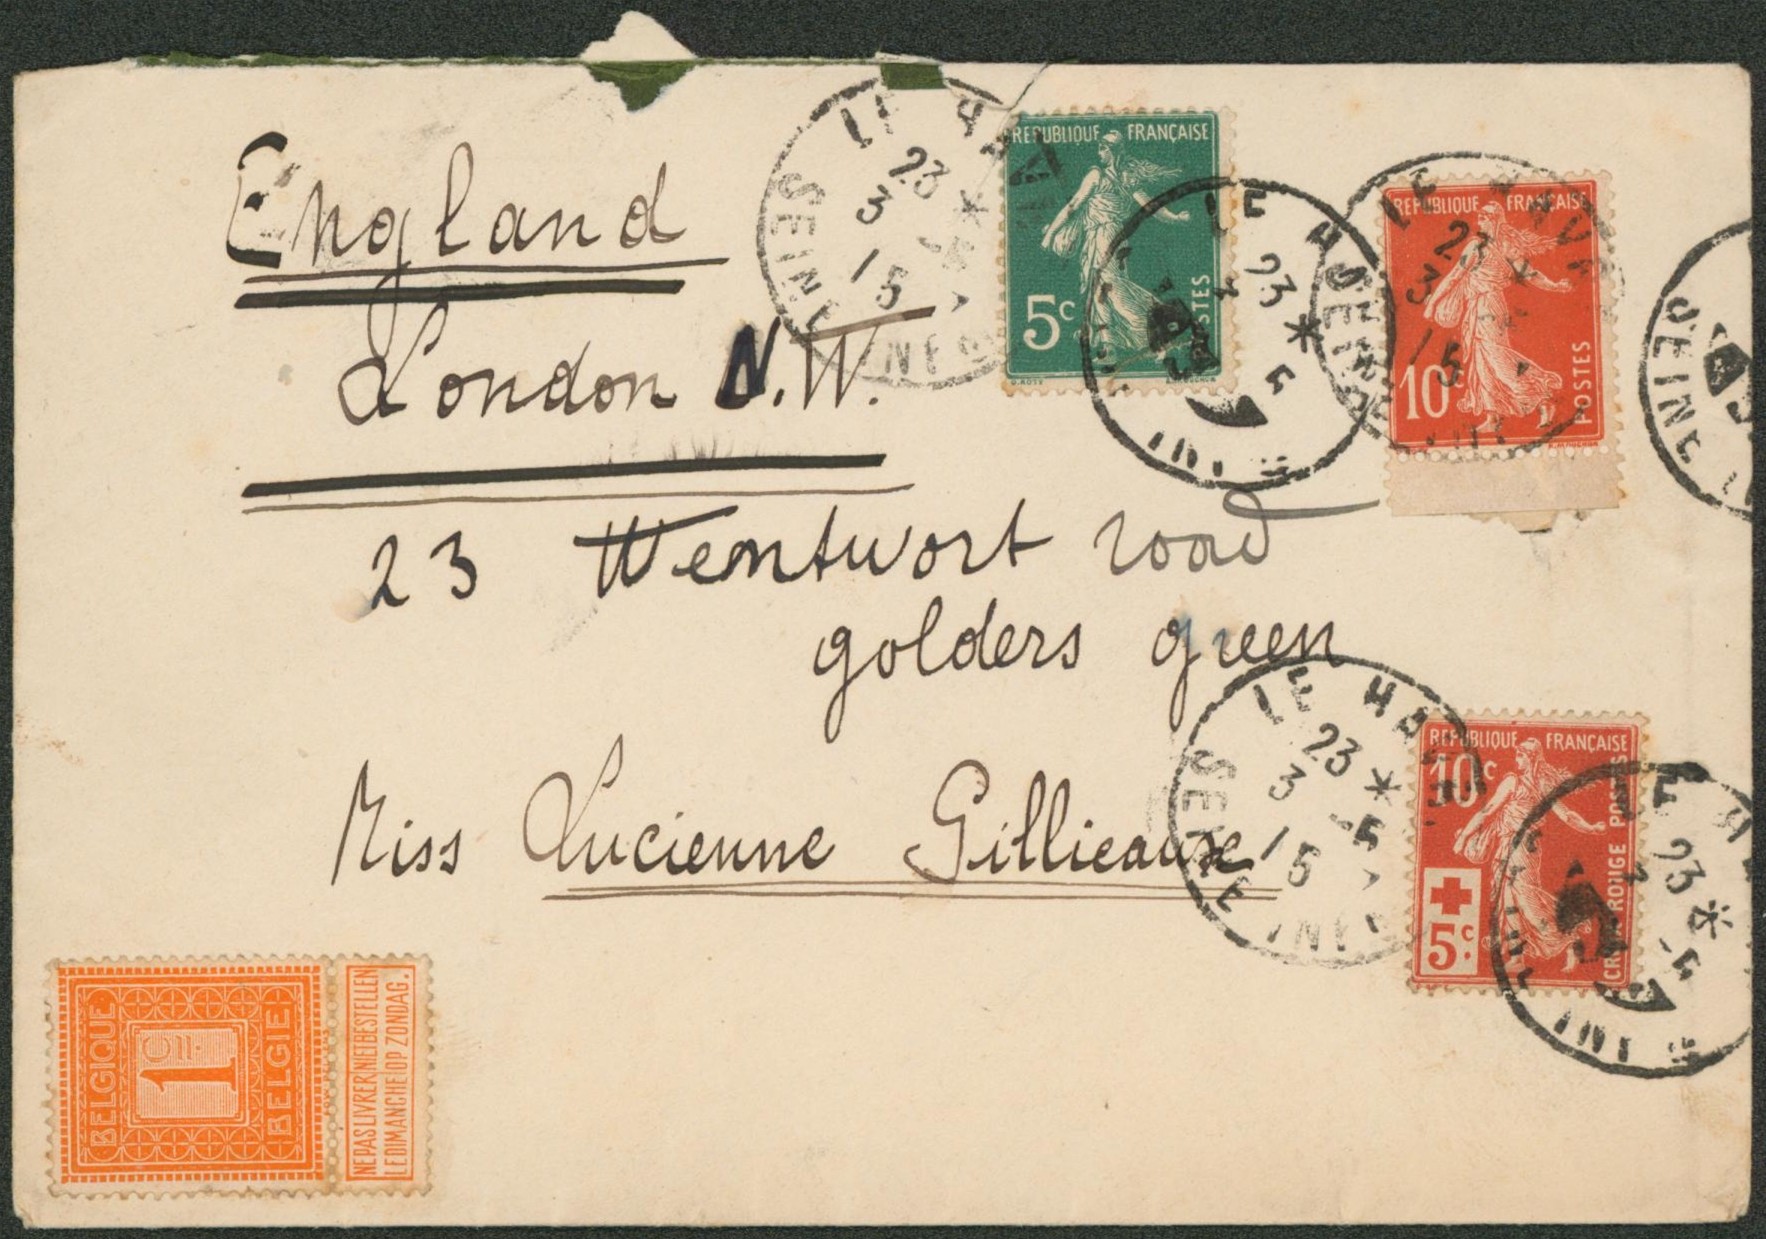 England
London N.W.
23 Wentwort road
golders green
Miss Lucienne Gillieaux
REPUBLIQUE FRANÇAISE
5c
POSTES
REPUBLIQUE FRANÇAISE
10c
POSTES
REPUBLIQUE FRANÇAISE
10c
5c.
CROIX ROUGE POSTES
BELGIQUE
1
CM.
BELGIË
NE PAS LIVRER NIET BESTELLEN
LE DIMANCHE OP ZONDAG.
LE HAVRE
23 *
3
15
SEINE INFRE
LE H
23 *
LE HAVRE
23 *
3
15
SEINE
SEINE
LE HAVRE
23 *
3 -5
15
SEINE
LE HA
23 *
3 -5